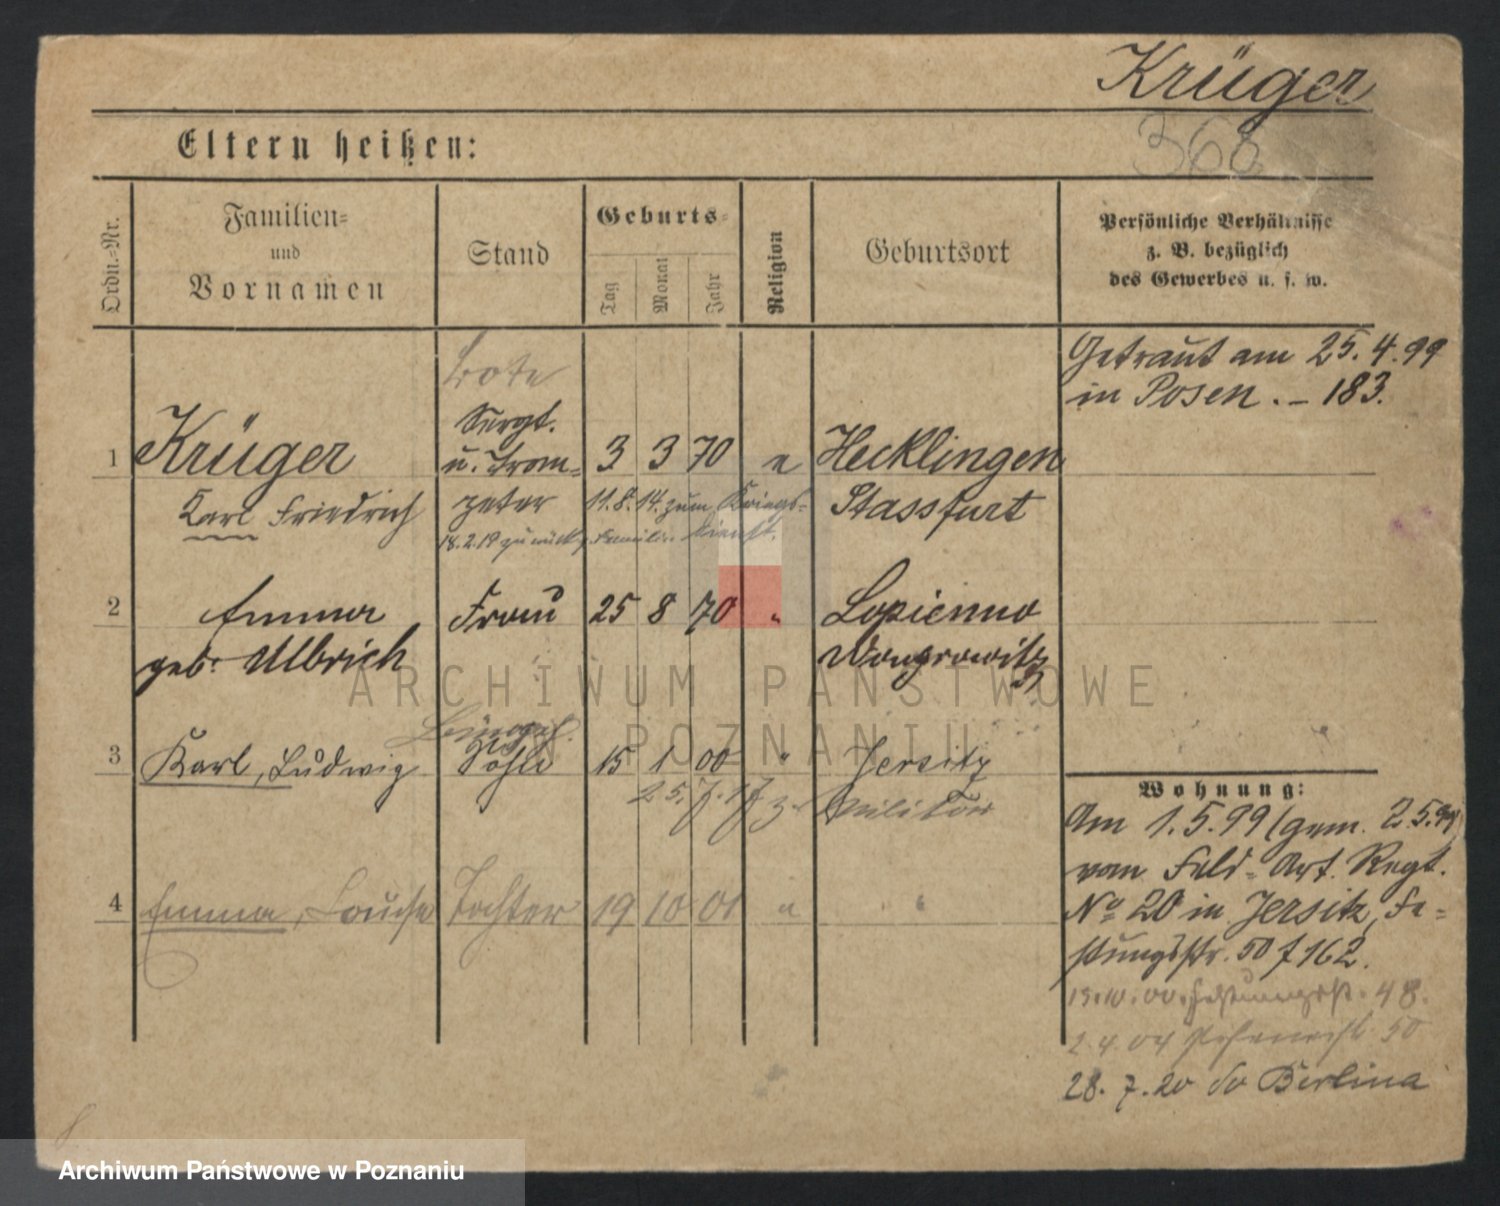 Krüger
368
Eltern heißen:
Ordn.-Nr.
Familien-
und
Vornamen
Stand
Geburts-
Tag
Monat
Jahr
Religion
Geburtsort
Persönliche Verhältnisse
z. B. bezüglich
des Gewerbes u. s. w.
Getraut am 25.4.99
in Posen. – 183.
Bote
Sergt.
1 Krüger u. Trom- 3 3 70 e Hecklingen
Karl Friedrich peter 11.8.14. zum Kriegs- Stassfurt
18.2.19 zurück, Familie dienst.
2 Emma Frau 25 8 70 " Lopienno
geb. Ulbrich Wongrowitz
3 Karl, Ludwig Sohn 15 1 00 " Jersitz
25.7.17 z. Militär
4 Emma, Louise Tochter 19 10 01 " "
Wohnung:
Am 1.5.99 (gem. 2.5.99)
vom Feld-Art. Regt.
No 20 in Jersitz, Fe-
stungsstr. 50 f 162.
15.10.00. Festungsstr. 48.
2.4.04 50
28.7.20 do Berlina
ARCHIWUM PAŃSTWOWE
W POZNANIU
Archiwum Państwowe w Poznaniu